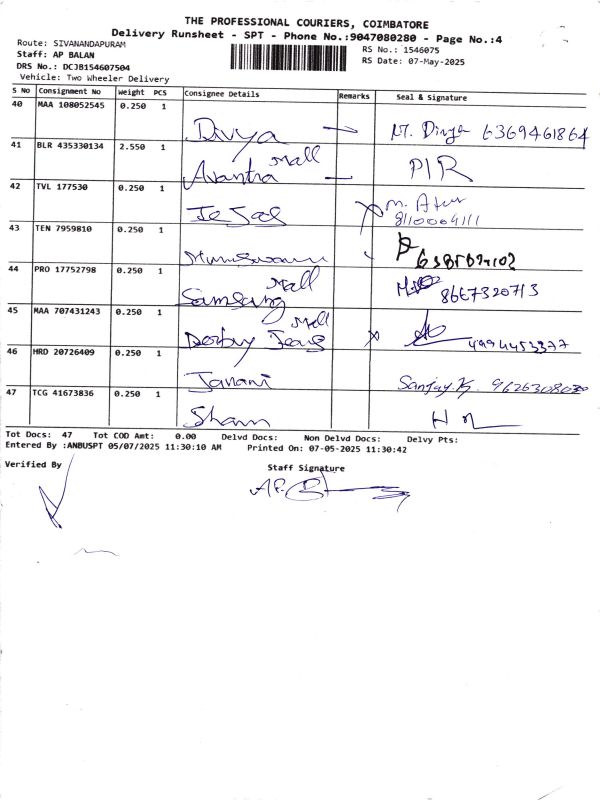 THE PROFESSIONAL COURIERS, COIMBATORE
Delivery Runsheet - SPT - Phone No.:9047080280 - Page No.:4
Route: SIVANANDAPURAM
Staff: AP BALAN
DRS No.: DCJB154607504
Vehicle: Two Wheeler Delivery
RS No.: 1546075
RS Date: 07-May-2025
S No Consignment No Weight PCS Consignee Details Remarks Seal & Signature
40 MAA 108052545 0.250 1 Divya M. Divya 6369461864
41 BLR 435330134 2.550 1 Avantra Mall PIR
42 TVL 177530 0.250 1 8110004111
43 TEN 7959810 0.250 1
44 PRO 17752798 0.250 1 Samsung Mall 8667320713
45 MAA 707431243 0.250 1 Derby Jeans Mall 4994453377
46 HRD 20726409 0.250 1 Janani Sanjay.K
47 TCG 41673836 0.250 1 Sham
Tot Docs: 47 Tot COD Amt: 0.00 Delvd Docs: Non Delvd Docs: Delvy Pts:
Entered By :ANBUSPT 05/07/2025 11:30:10 AM Printed On: 07-05-2025 11:30:42
Verified By
Staff Signature